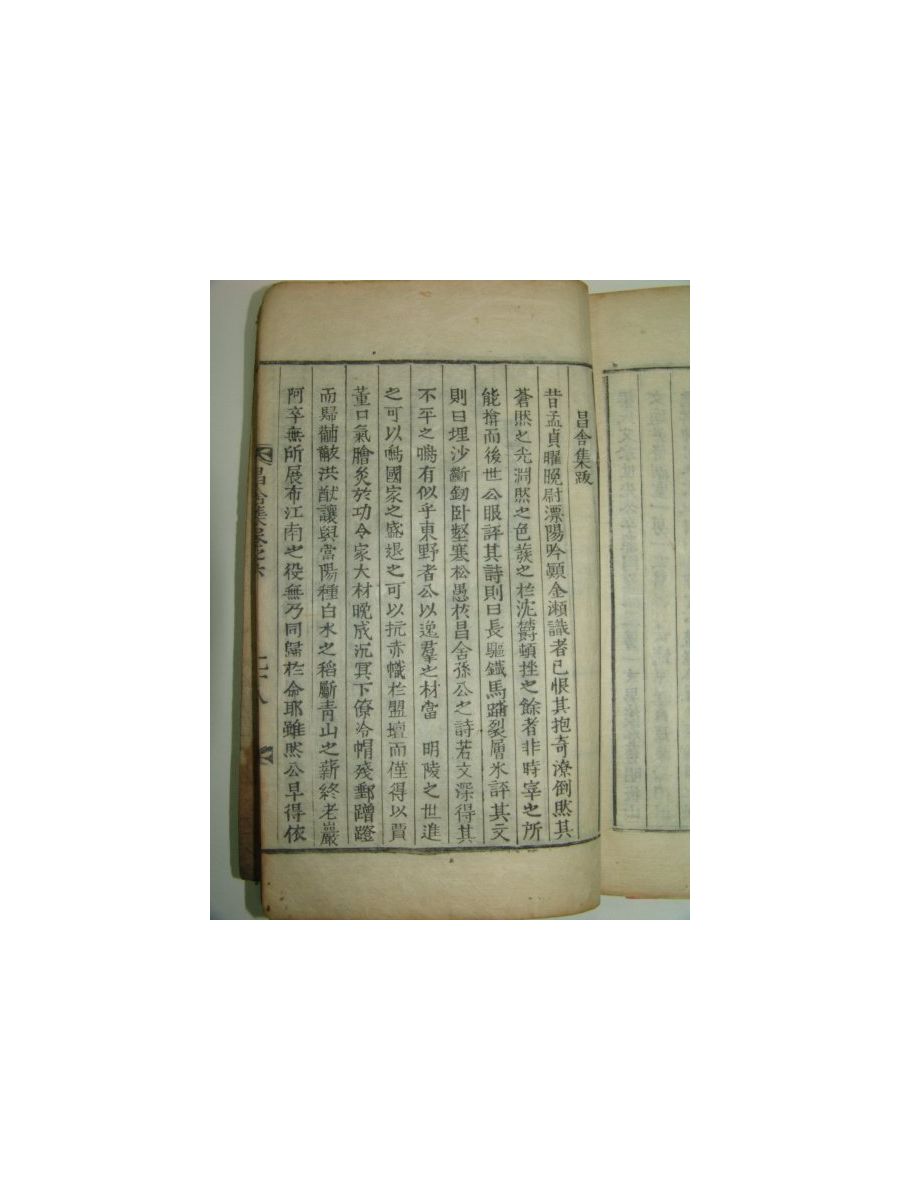 昌舍集跋
昔孟貞曜晚尉溧陽吟顚金瀨識者已恨其抱奇潦倒然其
蒼然之光淵然之色蔟之於沈欝頓挫之餘者非時宰之所
能揜而後世公眼評其詩則曰長驅鐵馬踊裂層氷評其文
則曰埋沙斷釰卧壑寒松愚於昌舍孫公之詩若文深得其
不平之鳴有似乎東野者公以逸羣之材當 明陵之世進
之可以鳴國家之盛退之可以抗赤幟於盟壇而僅得以賈
董口氣膾炙於功令家大材晚成沉冥下僚冷帽殘郵蹭蹬
而歸黼黻洪猷讓與當陽種白水之稻斸青山之薪終老巖
阿卒無所展布江南之役無乃同歸於命耶雖然公早得依
昌舍集卷之六